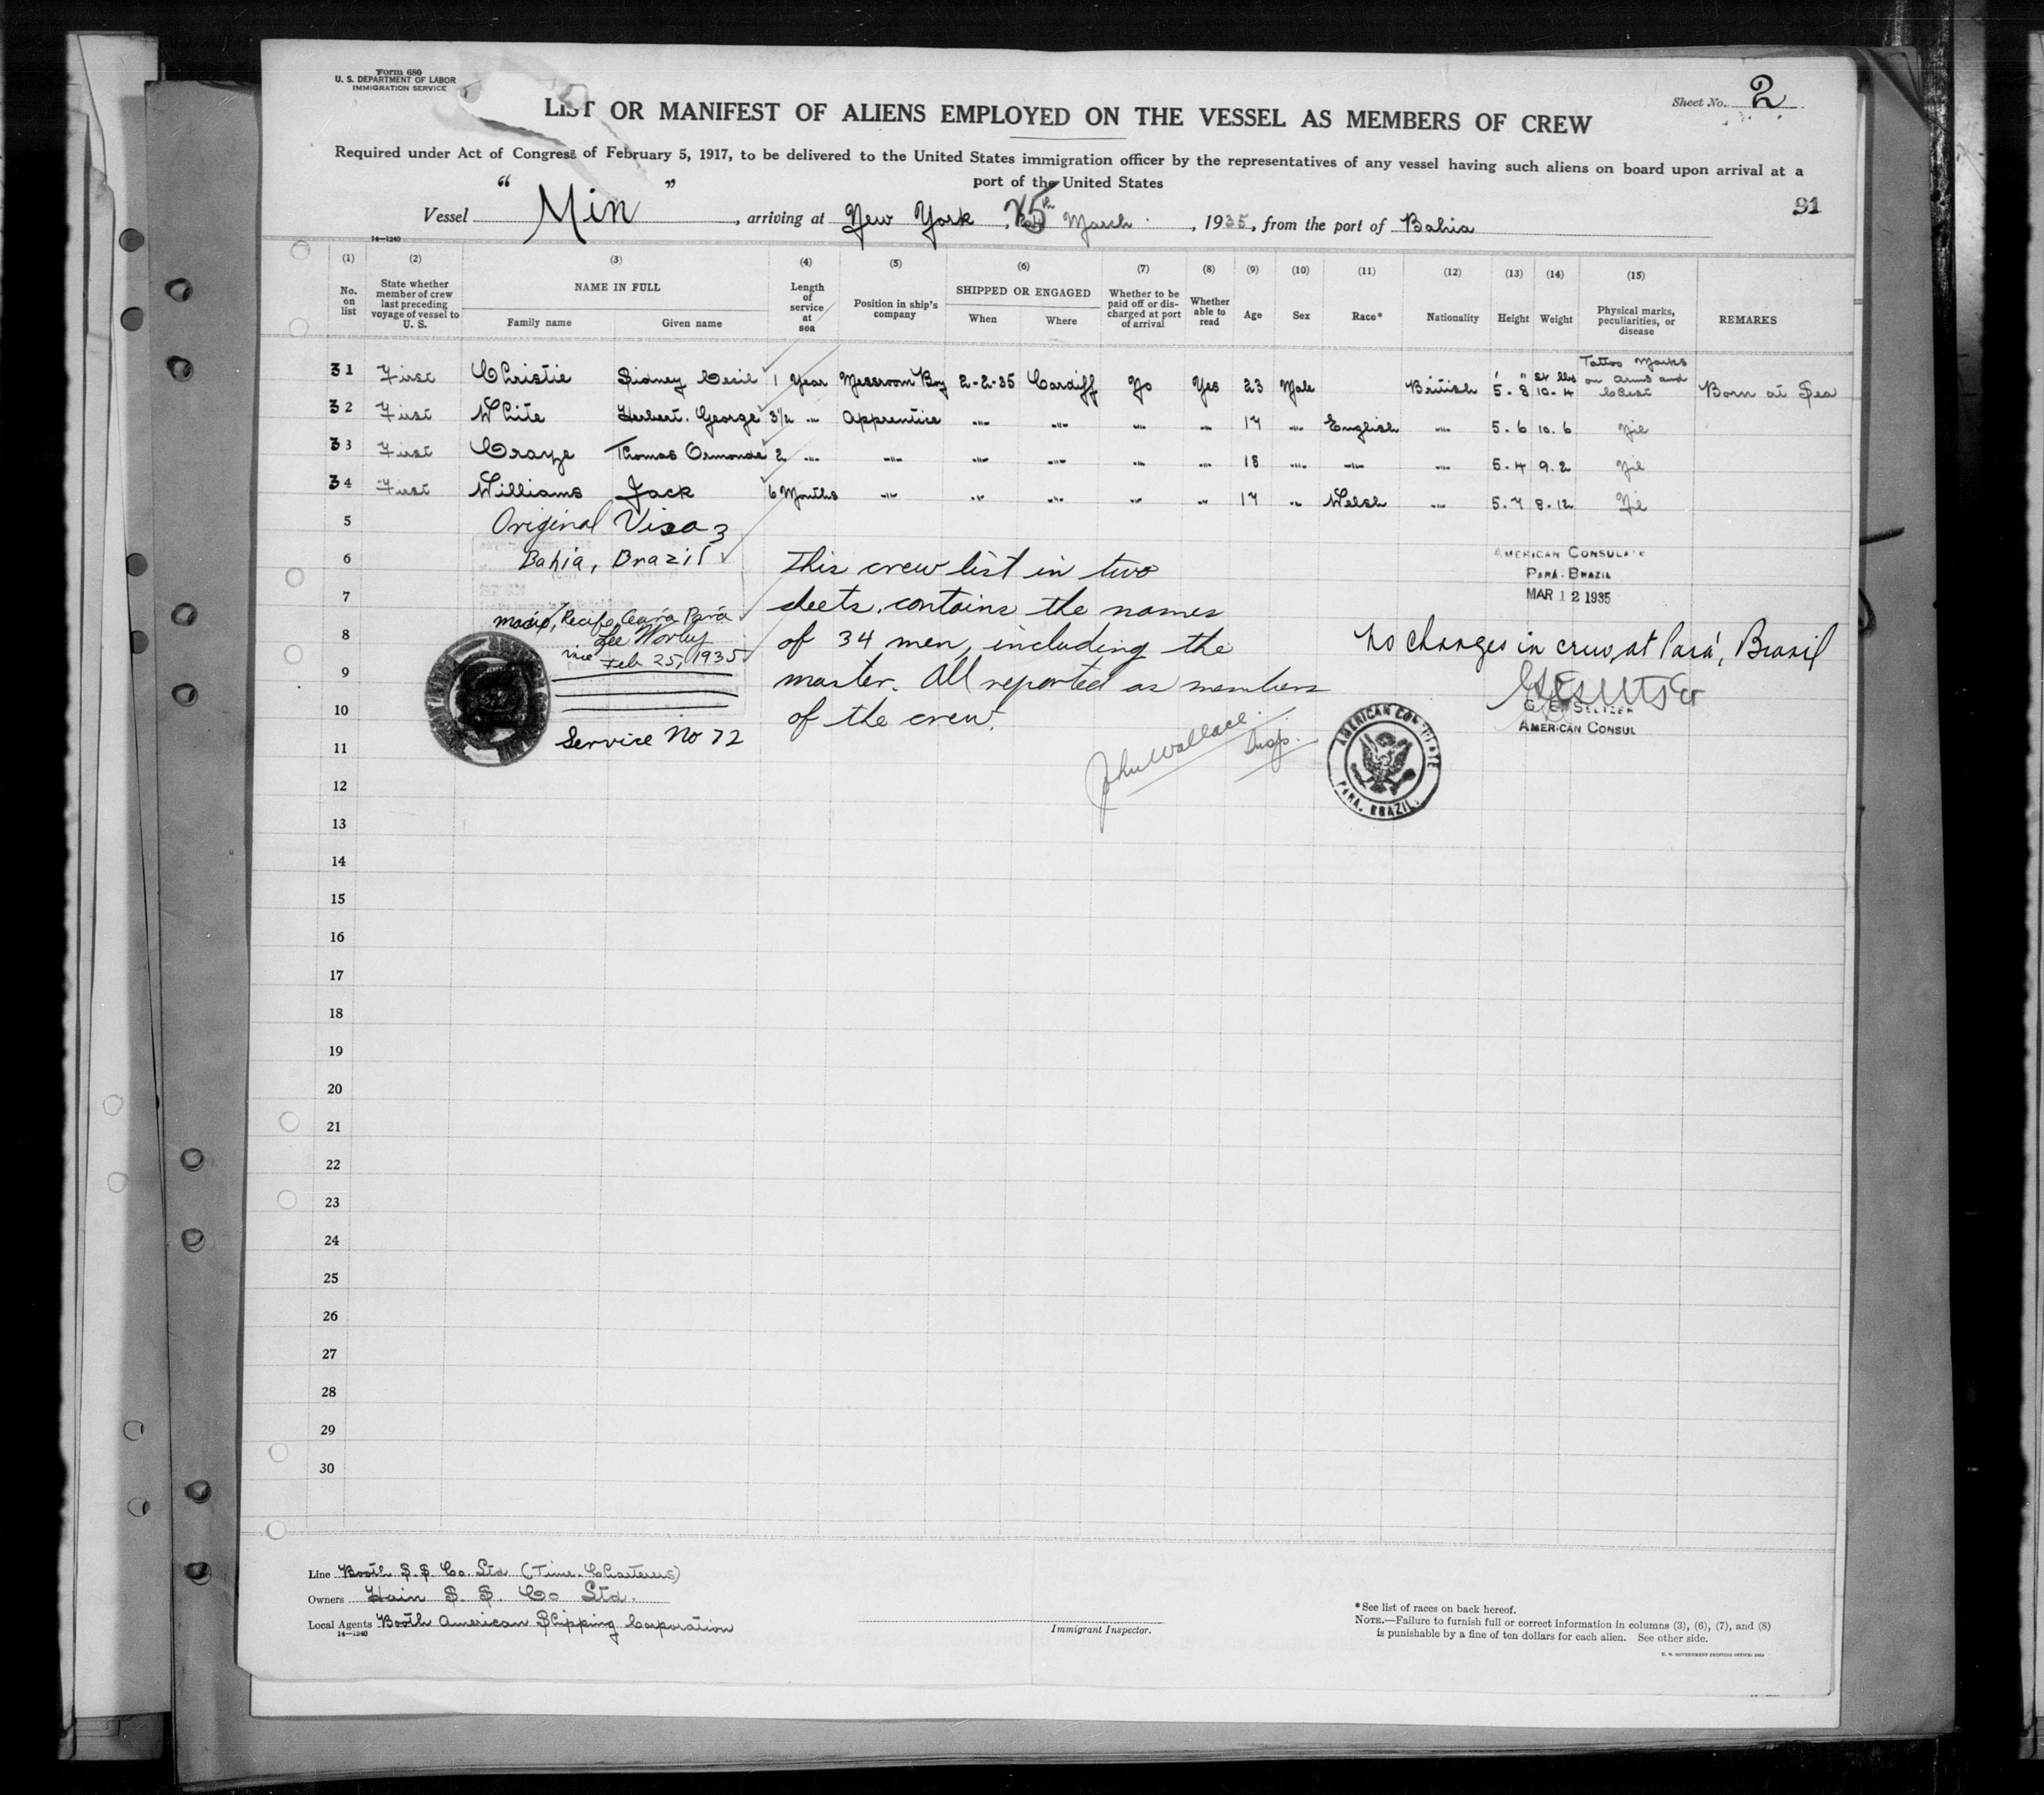 Form 680
U. S. DEPARTMENT OF LABOR
IMMIGRATION SERVICE
Sheet No. 2
LIST OR MANIFEST OF ALIENS EMPLOYED ON THE VESSEL AS MEMBERS OF CREW
Required under Act of Congress of February 5, 1917, to be delivered to the United States immigration officer by the representatives of any vessel having such aliens on board upon arrival at a
port of the United States
91
Vessel "Min", arriving at New York, 25th March, 1935, from the port of Bahia
14—1240
(1) (2) (3) (4) (5) (6) (7) (8) (9) (10) (11) (12) (13) (14) (15)
No. on list
State whether member of crew last preceding voyage of vessel to U. S.
NAME IN FULL
Family name Given name
Length of service at sea
Position in ship's company
SHIPPED OR ENGAGED
When Where
Whether to be paid off or discharged at port of arrival
Whether able to read
Age Sex Race* Nationality Height Weight
Physical marks, peculiarities, or disease
REMARKS
31 First Christie Sidney Cecil 1 Year Messroom Boy 2-2-35 Cardiff No Yes 23 Male British 5' . 8" St lbs 10. 4 Tattoo Marks on Arms and Chest Born at Sea
32 First White Herbert. George 3½ -"- Apprentice -"- -"- -"- -"- 17 -"- English -"- 5. 6 10. 6 Nil
33 First Craze Thomas Ormonde 2 -"- -"- -"- -"- -"- -"- 18 -"- -"- -"- 5. 4 9. 2 Nil
34 First Williams Jack 6 Months -"- -"- -"- -"- -"- 17 -"- Welsh -"- 5. 7 8. 12 Nil
5 Original Visa
6 Bahia, Brazil
Recife, Ceará Pará
Feb 25, 1935
Service No 72
This crew list in two
sheets, contains the names
of 34 men, including the
master. All reported as members
of the crew.
John Wallace
Insp.
AMERICAN CONSULATE
PARÁ-BRAZIL
MAR 12 1935
No changes in crew at Pará, Brasil
G. E. SELTZER
AMERICAN CONSUL
AMERICAN CONSULATE
PARA, BRAZIL.
7
8
9
10
11
12
13
14
15
16
17
18
19
20
21
22
23
24
25
26
27
28
29
30
Line Booth S.S. Co. Ltd (Time. Charterers)
Owners Hain S. S. Co Ltd.
Local Agents Booth American Shipping Corporation
14—1240
Immigrant Inspector.
*See list of races on back hereof.
NOTE.—Failure to furnish full or correct information in columns (3), (6), (7), and (8)
is punishable by a fine of ten dollars for each alien. See other side.